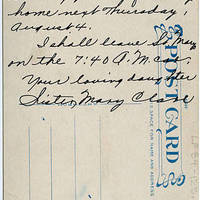 home next Thursday,
August 4.
I shall leave St. Marys
on the 7:40 A.M. car.
Your loving daughter
Sister Mary Clare
POST CARD
SPACE FOR NAME AND ADDRESS